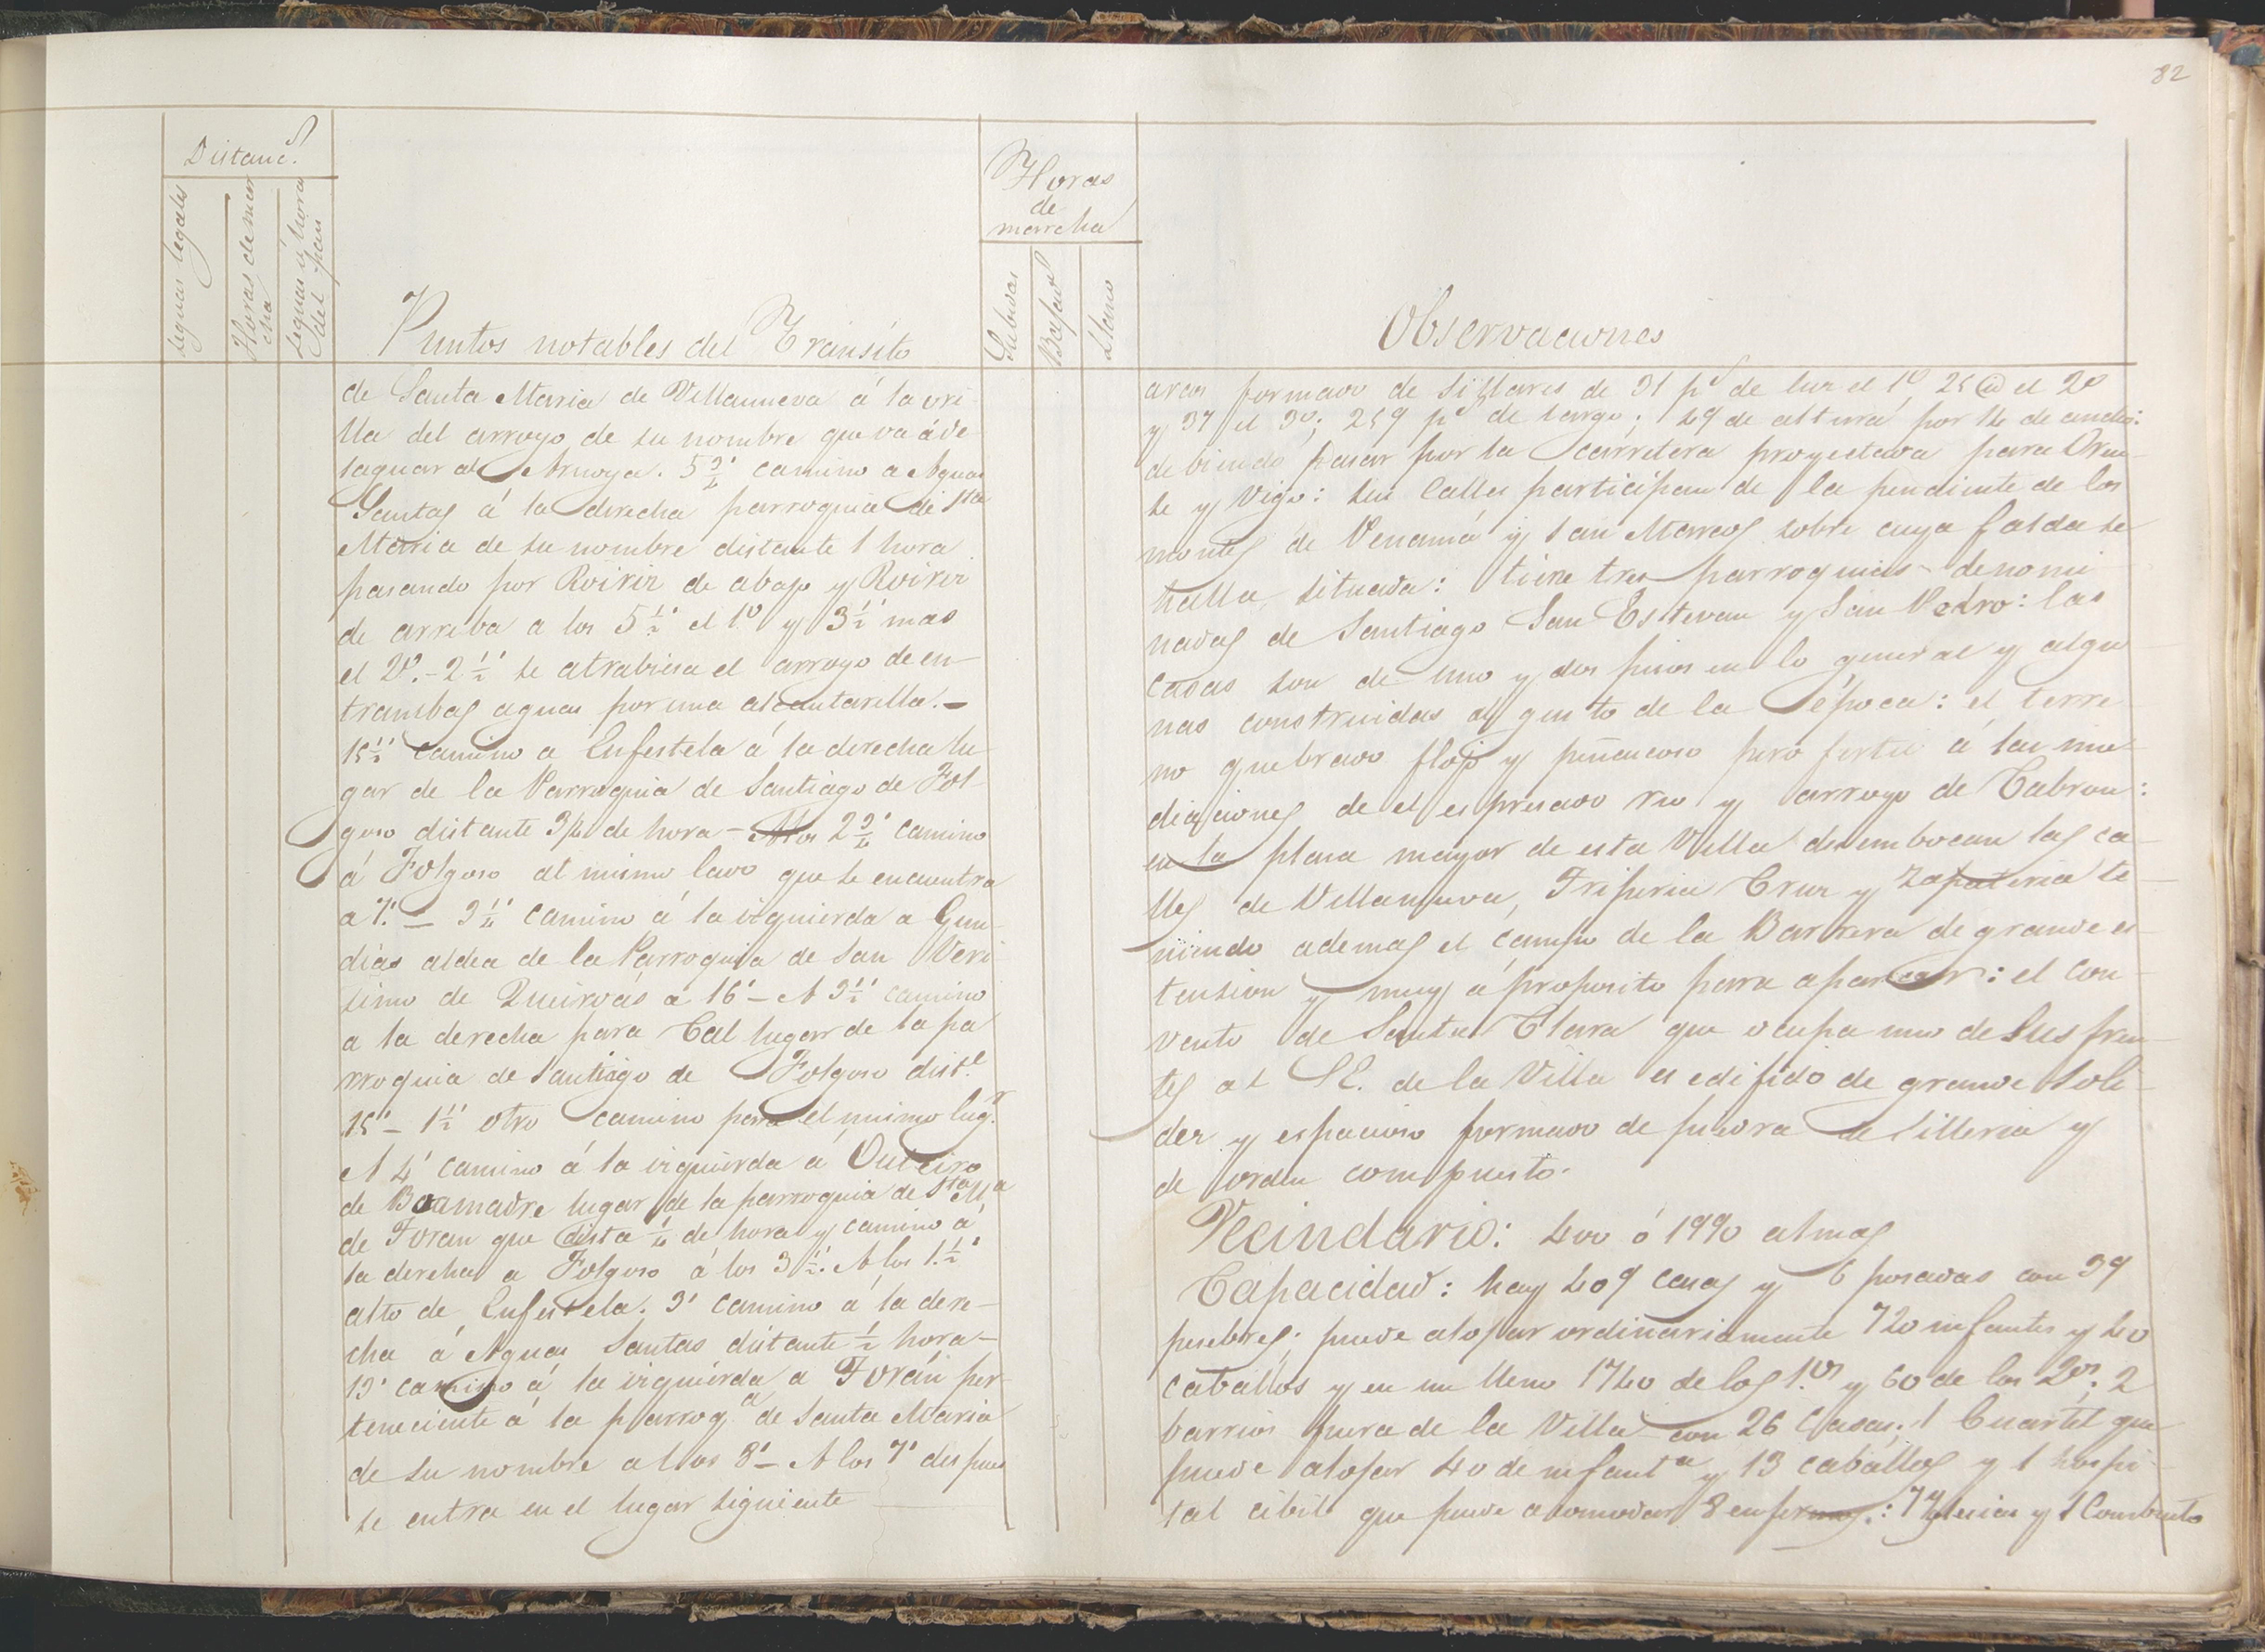 82
Distanc.s
Leguas legales
Horas de mar
cha
Leguas y hora
del pais
Puntos notables del Tránsito
Horas
de
marcha
Subidas
Bajad.s
Llano
Observaciones
de Santa Maria de Villanueva á la ori
lla del arroyo de su nombre que va á de
saguar al Arnoya. 5 3/4' camino a Aguas
Santas á la derecha parroquia de S.ta
Maria de su nombre distante 1 hora
pasando por Roiriz de abajo y Roiriz
de arriba a los 5 1/2' el 1º y 3 1/2' mas
el 2º.- 2 1/2' se atrabiesa el arroyo de en-
trambas aguas por una alcantarilla.-
15 1/2' camino a Enfestela á la derecha lu-
gar de la Parroquia de Santiago de Fol-
goso distante 3/4 de hora - A los 2 3/4' camino
á Folgoso al mismo lado que se encuentra
a 7'. - 3 1/4' camino á la izquierda a Gun-
dias aldea de la Parroquia de San Veri
simo de Queiroás a 16' - A 3 1/2' camino
a la derecha para Cal lugar de la pa
rroquia de Santiago de Folgoso dist.e
15' - 1 1/2' otro camino para el mismo lug.r
A 4' camino á la izquierda á Outeiro
de Boamadre lugar de la parroquia de S.ta M.a
de Foran que dista 1/4 de hora y camino á
la derecha a Folgoso á los 3 1/2'. A los 1 1/2'
alto de Enfestela. 3' camino á la dere-
cha á Aguas Santas distante 1/2 hora-
13' camino á la izquierda a Forán per-
teneciente á la parroq.a de Santa Maria
de su nombre a los 8' - A los 7' despues
se entra en el lugar siguiente
arcos formado de sillares de 31 p.s de luz el 1º, 25 id el 2º
y 37 el 3º; 259 p.s de largo; 49 de altura por 14 de ancho:
debiendo pasar por la carretera proyectada para Oren-
se y Vigo: sus calles participan de la pendiente de los
montes de Penamá y San Marcos sobre cuya falda se
halla situada: tiene tres parroquias denomi
nadas de Santiago San Estevan y San Pedro: las
casas son de uno y dos pisos en lo general y algu
nas construidas al gusto de la época: el terre
no quebrado flojo y peñascoso pero fertil á las inme
diaciones de el espresado rio y arroyo de Cabron:
en la plaza mayor de esta Villa desembocan las ca-
lles de Villanueva, Triperia Cruz y Zapateria te-
niendo ademas el campo de la Barrera de grande es-
tension y muy á proposito para aparcar: el con-
vento de Santa Clara que ocupa uno de sus fren-
tes al SE. de la Villa es edificio de grande soli-
dez y espacioso formado de piedra de silleria y
de orden compuesto.
Vecindario: 400 ó 1990 almas
Capacidad: hay 409 casas y 6 posadas con 39
pesebres; puede alojar ordinariamente 720 infantes y 40
caballos y en un lleno 1740 de los 1.os y 60 de los 2.os; 2
barrios fuera de la Villa con 26 Casas; 1 Cuartel que
puede alojar 40 de infant.a y 13 caballos y 1 hospi-
tal cibil que puede acomodar 8 enfermos: 7 Yglesias y 1 Combento